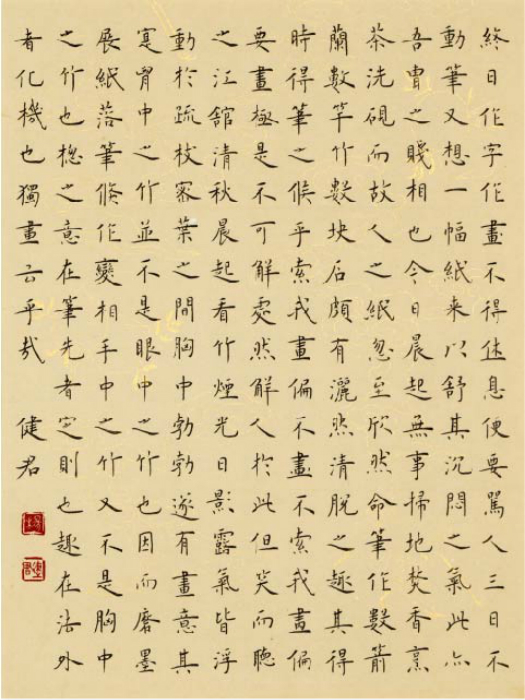 終日作字作畫不得休息便要罵人三日不
動筆又想一幅紙来以舒其沉悶之氣此亦
吾曹之賤相也今日晨起無事掃地焚香烹
茶洗硯而故人之紙忽至欣然命筆作數箭
蘭數竿竹數块石頗有灑然清脱之趣其得
時得筆之候乎索我畫偏不畫不索我畫偏
要畫極是不可解處然解人於此但笑而聴
之江舘清秋晨起看竹煙光日影露氣皆浮
動於疏枝密葉之間胸中勃勃遂有畫意其
寔胷中之竹並不是眼中之竹也因而磨墨
展紙落筆倏作變相手中之竹又不是胸中
之竹也揔之意在筆先者定則也趣在法外
者化機也獨畫云乎哉 健君